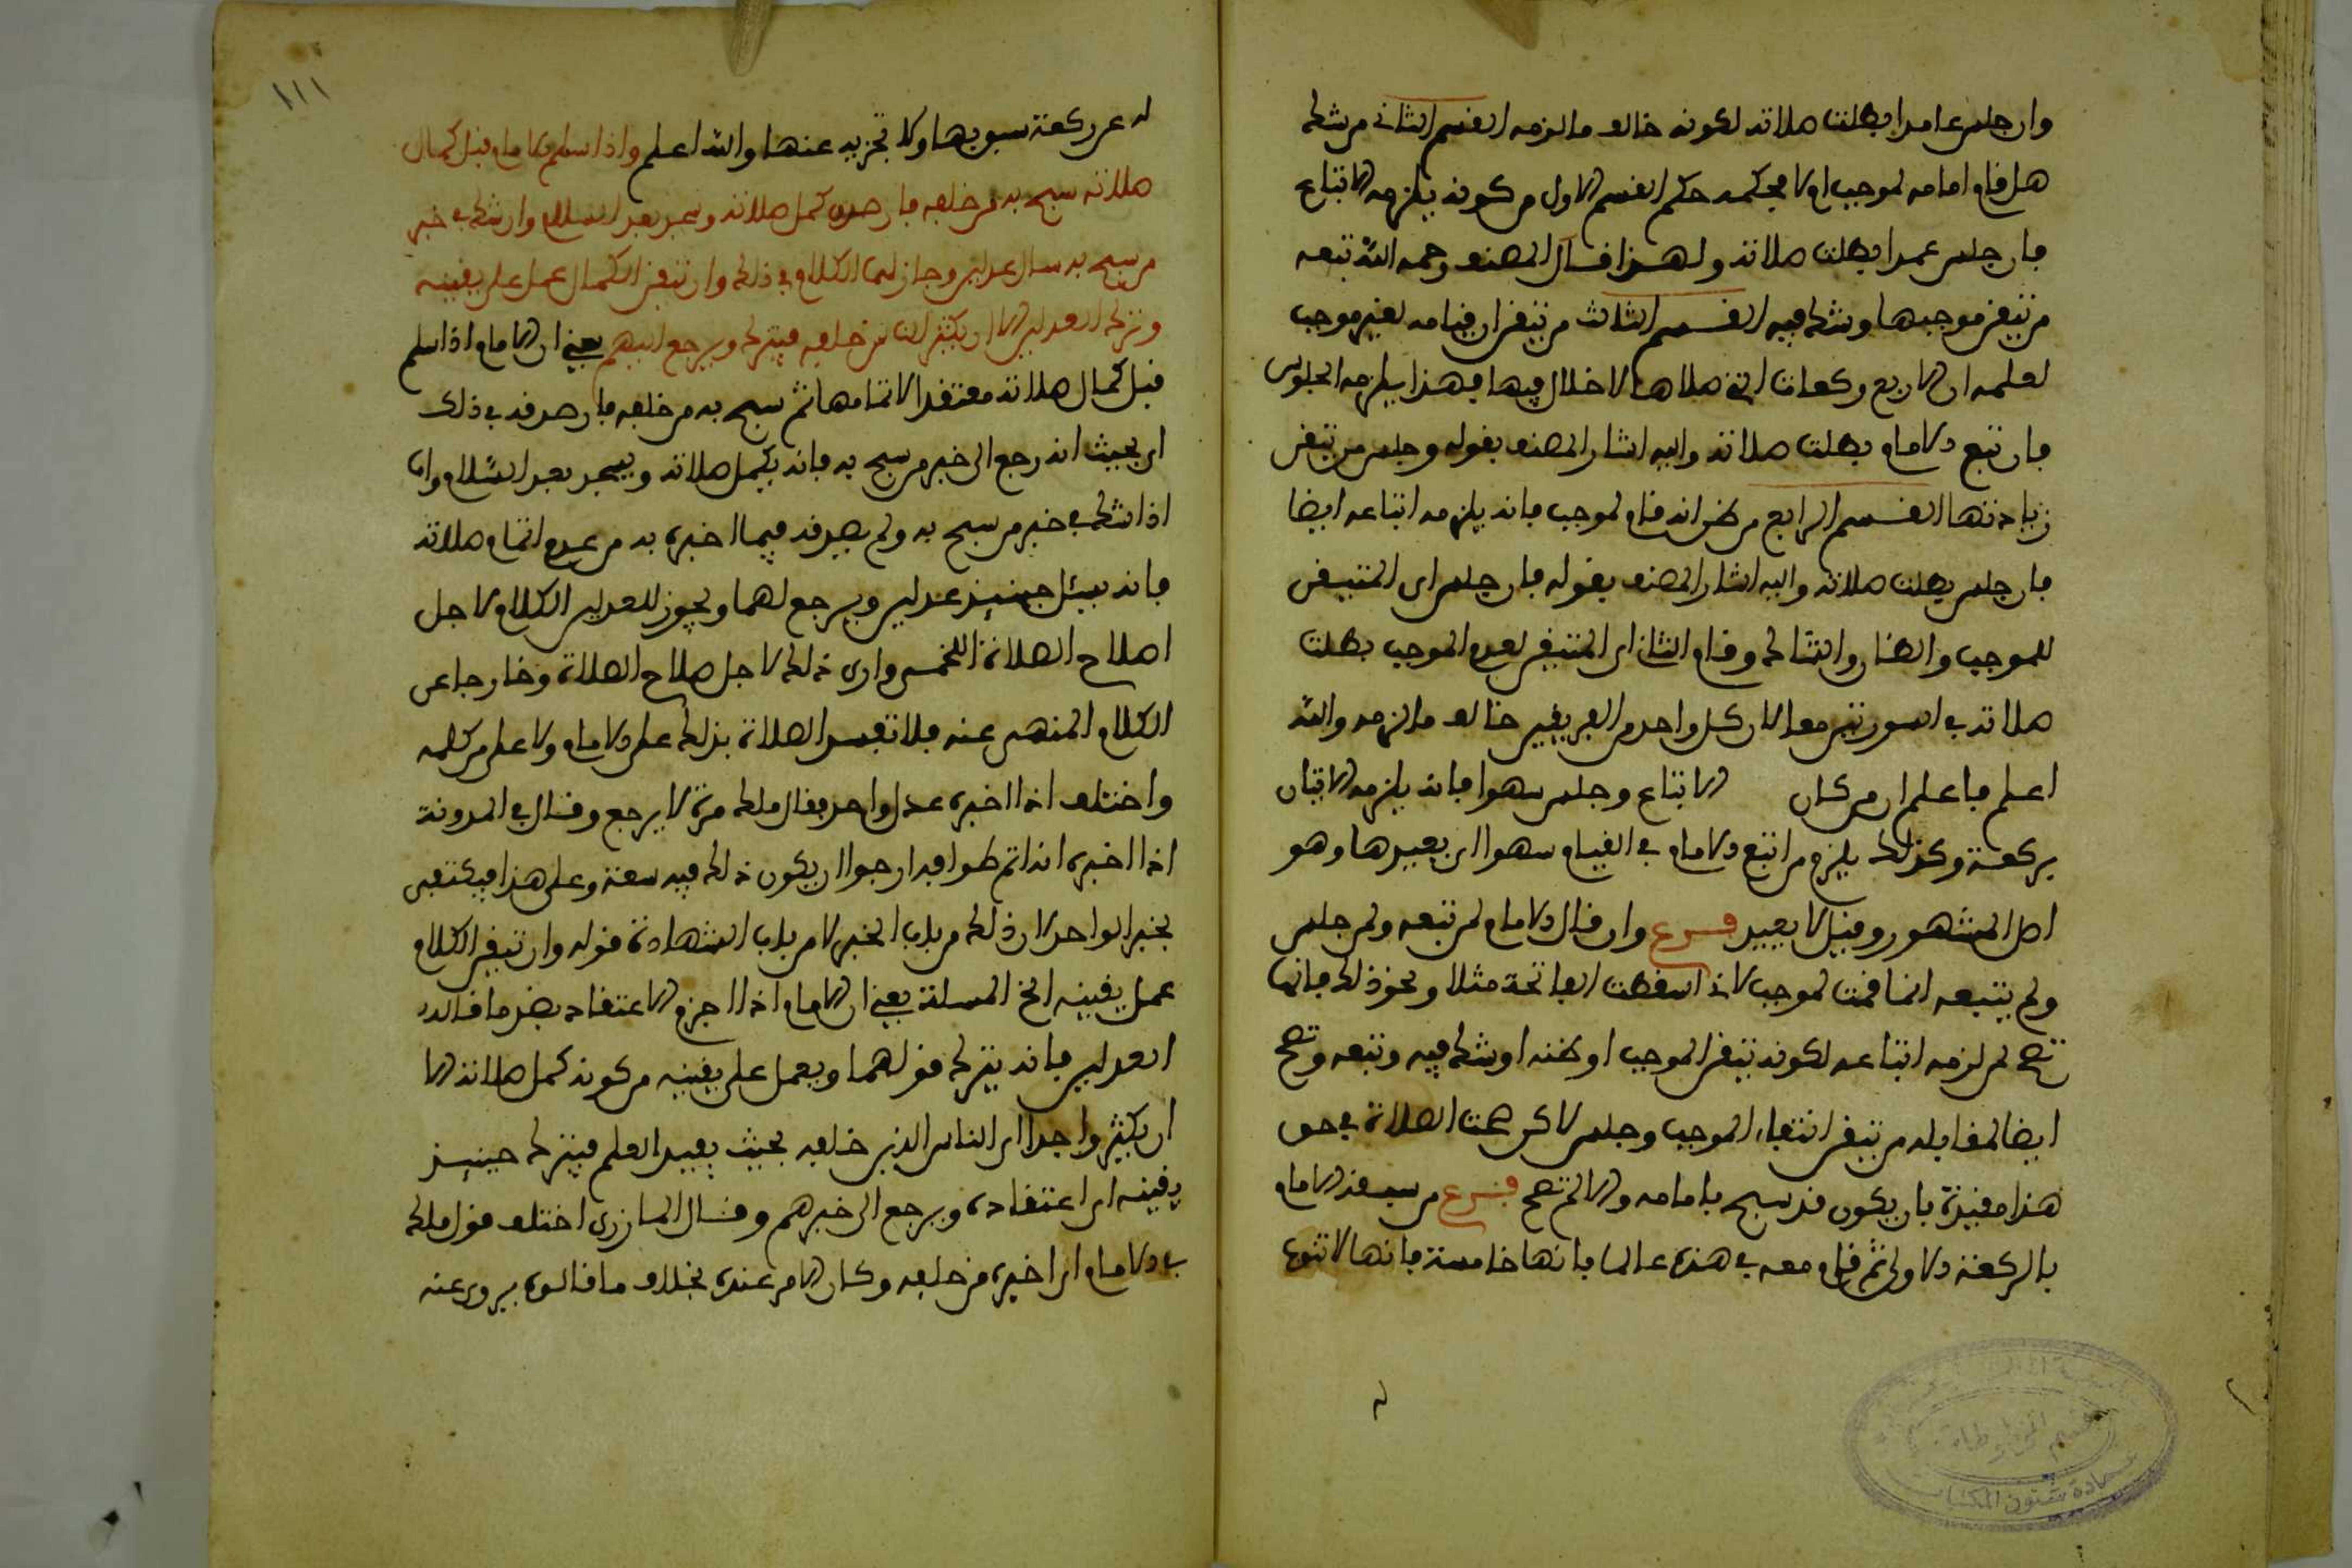 وان جلس عامدا بطلت صلاته لكونه خالف ما لزمه القسم الثاني من شك
هل قام امامه لموجب ام لا فحكمه حكم القسم الاول من كونه يلزمه الاتباع
فان جلس عمدا بطلت صلاته ولهذا قال المصنف رحمه الله تبعه
من تيقن موجبها وشك فيه القسم الثالث من تيقن ان قيامه لغير موجب
لعلمه ان الاربع ركعات التي صلاها لا خلال فيها فهذا يلزمه الجلوس
فان تبع الامام بطلت صلاته واليه اشار المصنف بقوله وجلس من تيقن
زيادتها القسم الرابع من ظن انه قام لموجب فانه يلزمه اتباعه ايضا
فان جلس بطلت صلاته واليه اشار المصنف بقوله فان جلس اي المتيقن
للموجب والظان والشاك وقام الثاني اي المتيقن لعدم الموجب بطلت
صلاته في الصورتين معا لان كل واحد من الفريقين خالف ما لزمه والله
اعلم فاعلم ان من كان الاتباع وجلس سهوا فانه يلزمه الاتيان
بركعة وكذلك يلزم من اتبع الامام في القيام سهوا ان يعيدها وهو
اصل المشهور وقيل لا يعيد فرع وان قال الامام لمن تبعه ولمن جلس
ولم يتبعه انما قمت لموجب لاني اسقطت الفاتحة مثلا ونحو ذلك فانها
تصح لمن لزمه اتباعه لكونه تيقن الموجب او ظنه او شك فيه وتبعه وتصح
ايضا لمقابله من تيقن انتفاء الموجب وجلس لاكن صحت الصلاة في حق
هذا مقيدة بان يكون قد سبح بامامه والا لم تصح فرع من سبقه الامام
بالركعة الاولى ثم قام معه في هذه عالما بانها خامسة فانها لا تنوب
له عن ركعة سبق بها ولا تجزيه عنها والله اعلم واذا سلم الامام قبل كمال
صلاته سبح به من خلفه فان صدق كمل صلاته وسجد بعد السلام وان شك في خبر
من سبح به سال عدلين وجاز لهما الكلام في ذلك وان تيقن الكمال عمل على يقينه
وترك العدلين الا ان يكثر الناس خلفه فيترك ويرجع اليهم يعني ان الامام اذا سلم
قبل كمال صلاته معتقدا لاتمامها ثم سبح به من خلفه فان صدقه في ذلك
اي بحيث انه رجع الى خبر من سبح به فانه يكمل صلاته ويسجد بعد السلام واما
اذا شك في خبر من سبح به ولم يصدقه فيما اخبره به من عدم اتمام صلاته
فانه يسئل حينئذ عدلين ويرجع لهما ويجوز للعدلين الكلام لاجل
اصلاح الصلاة اللخمي وارى ذلك لاجل صلاح الصلاة وخارجا عن
الكلام المنهي عنه فلا تفسد الصلاة بذلك على الامام ولا على من كلمه
واختلف اذا اخبره عدل واحد فقال ملك مرة لا يرجع وقال في المدونة
اذا اخبره انه اتم طوافه ارجوا ان يكون ذلك فيه سعة وعلى هذا فيكتفي
بخبر الواحد لان ذلك من باب الخبر لا من باب الشهادة قوله وان تيقن الكلام
عمل يقينه الخ المسئلة يعني ان الامام اذا جزم الاعتقاد بضد ما قال له
العدلين فانه يترك قولهما ويعمل على يقينه من كونه كمل صلاته الا
ان يكثروا جدا اي الناس الذين خلفه بحيث يفيد العلم فيترك حينئذ
يقينه اي اعتقاده ويرجع الى خبرهم وقال المازري اختلف قول ملك
في الامام اذا اخبره من خلفه وكان الامر عنده بخلاف ما قالوه فروى عنه